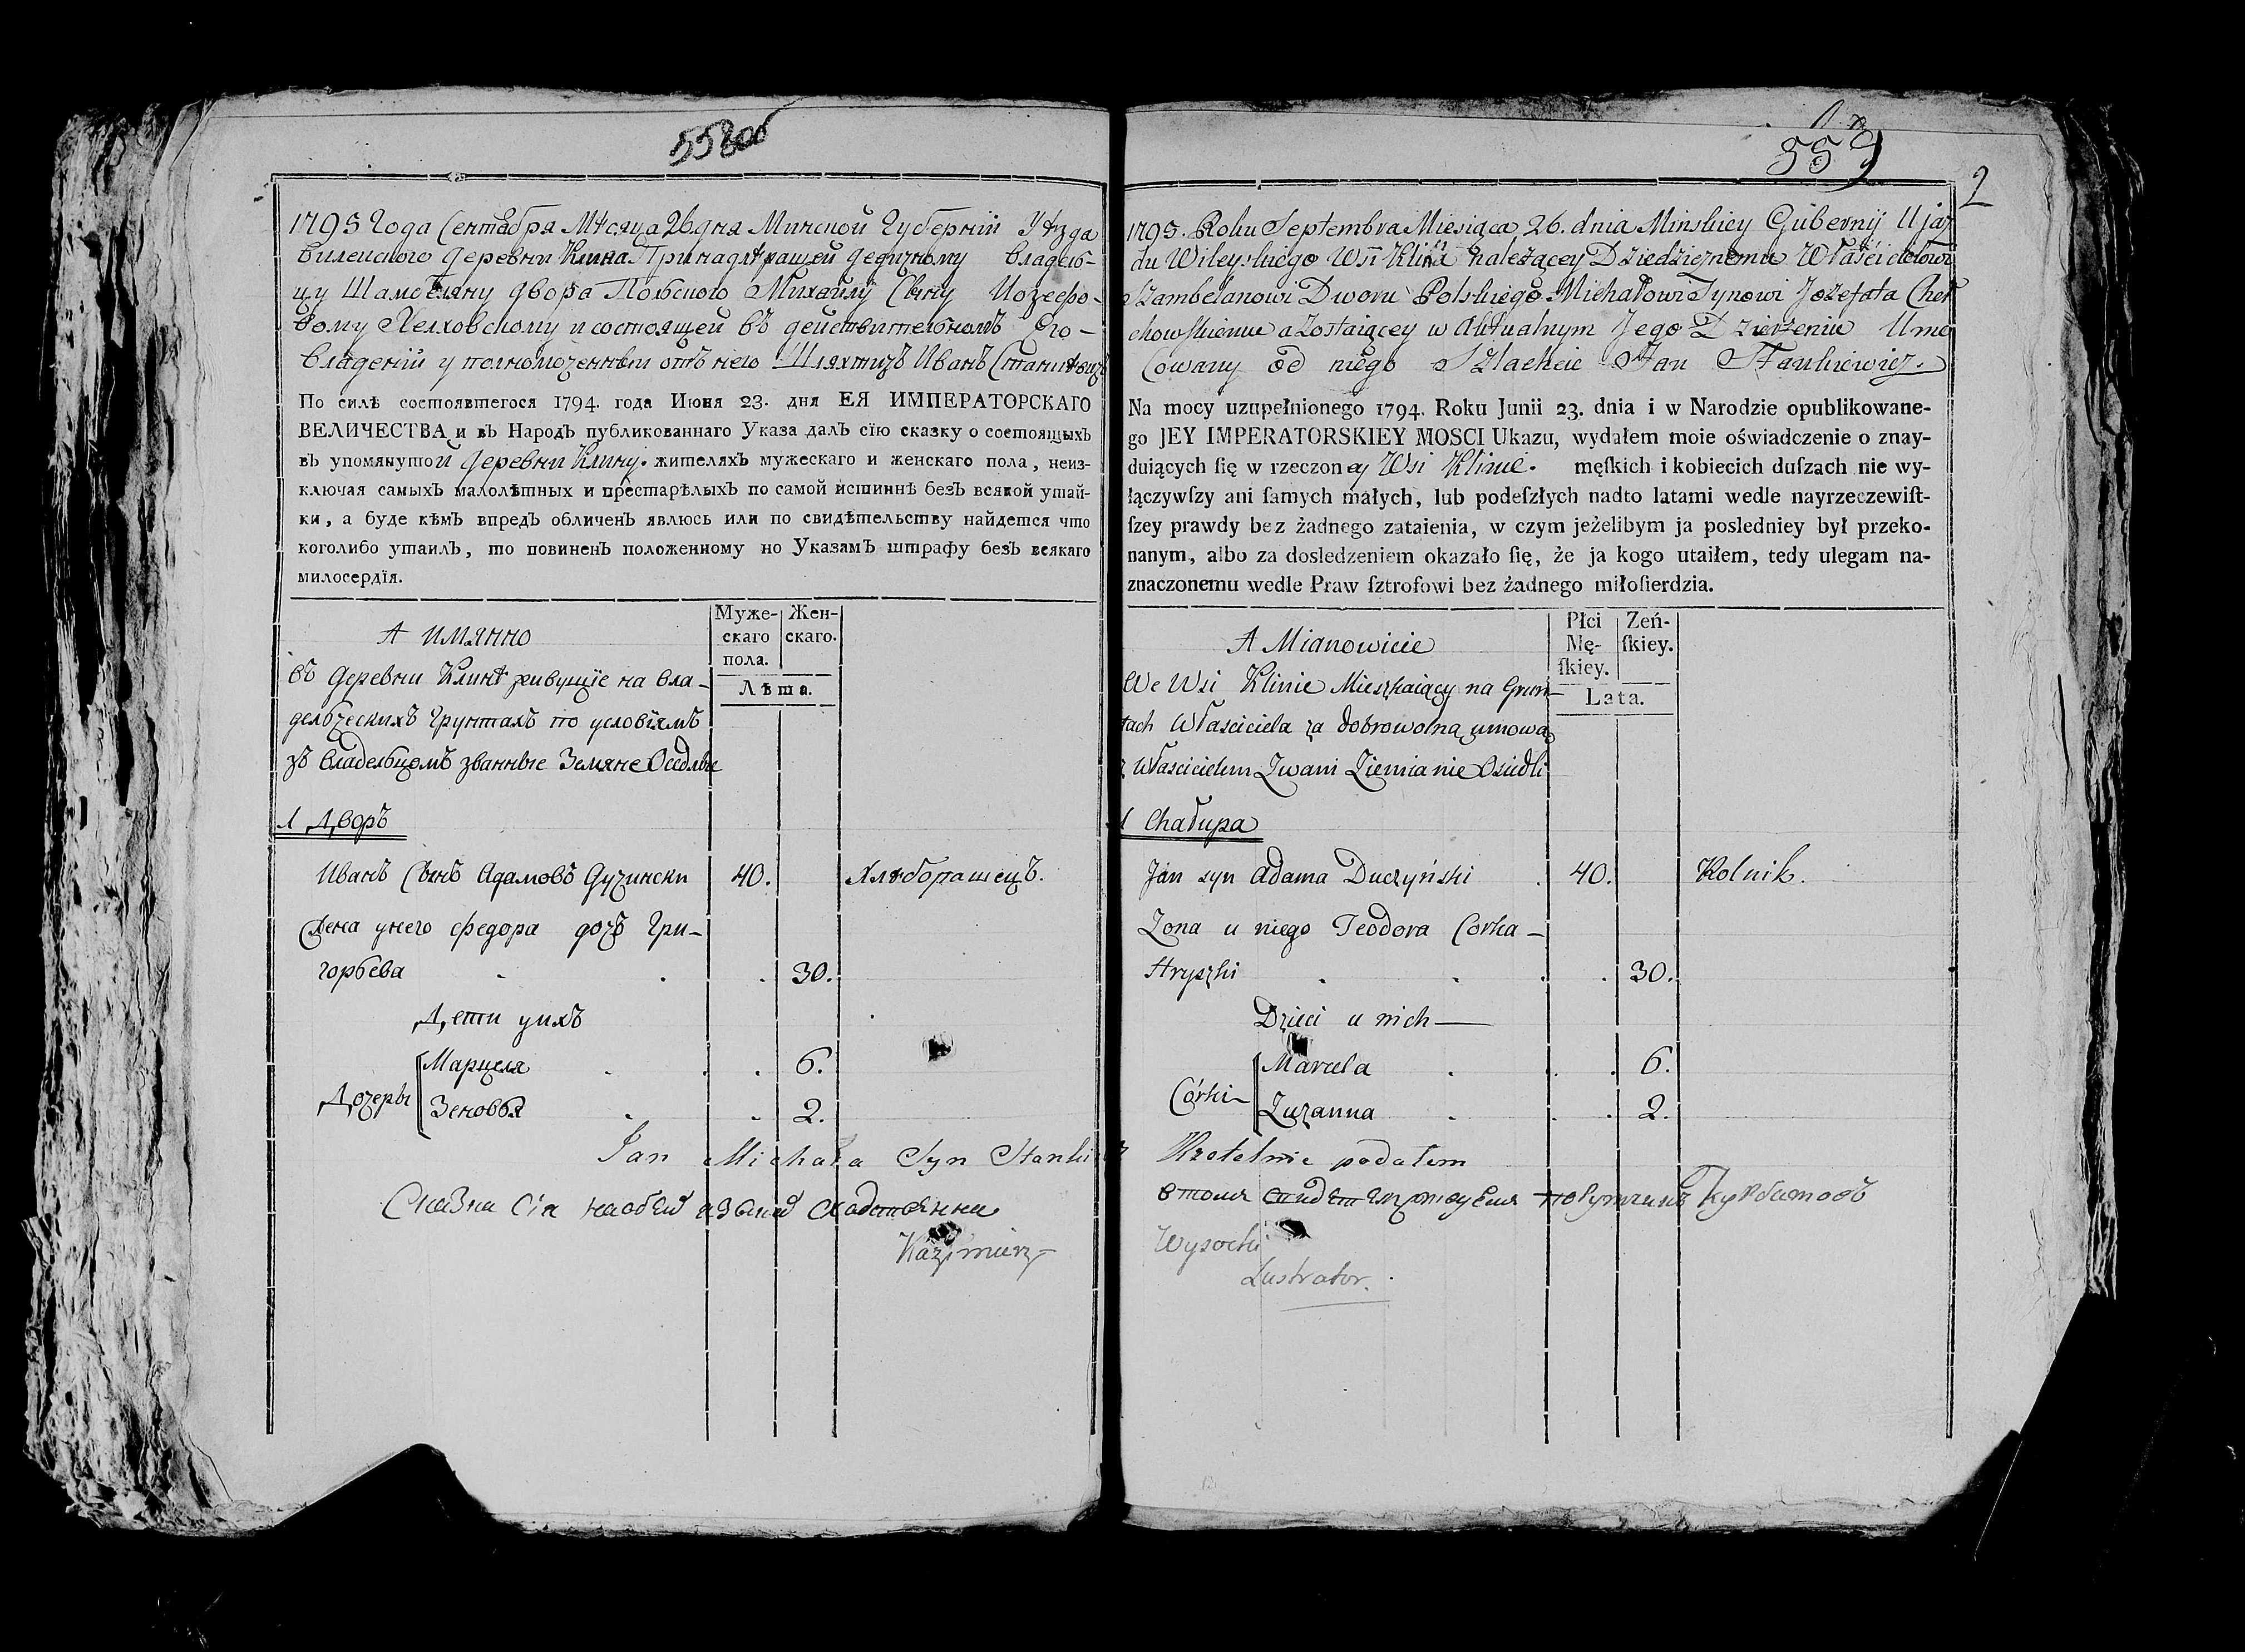 558об
1795 Года Сентября Мѣсяца 26 дня Минской Губерніи Уѣзда
Вилейского деревни Клина Принадлѣжащей дедичному владель-
цу Шамбеляну двора Польского Михайлу Сыну Иозефо-
вому Хелховскому и состоящей въ действительномъ Его-
владеніи уполномоченныи отъ него Шляхтичъ Иванъ Станкѣвичъ
По силѣ состоявшегося 1794. года Июня 23. дня ЕЯ ИМПЕРАТОРСКАГО
ВЕЛИЧЕСТВА и въ Народъ публикованнаго Указа далъ сїю сказку о состоящыхъ
въ упомянутой деревни Клину. жителяхъ мужескаго и женскаго пола, неиз-
ключая самыхъ малолѣтных и престарѣлыхъ по самой истиннѣ безъ всякой утай-
ки, а буде кѣмъ впредъ обличенъ явлюсь или по свидѣтельству найдется что
коголибо утаилъ, то повиненъ положенному по Указамъ штрафу безъ всякаго
милосердїя.
Муже- Жен-
скаго скаго.
пола.
Лѣта.
А имянно
въ деревни Клинѣ живущіе на вла-
дельческихъ грунтахъ по условіямъ
зъ владельцомъ званные Земяне Оседлые
1 Дворъ
Иванъ Сынъ Адамовъ Дучински 40. Хлѣборашецъ.
Жена унего Федора дочь Гри-
горьева 30.
Дети унхъ
Дочеры
Марцеля 6.
Зеновья 2.
Jan Michała Syn Stanki
Сказка Сія
Kazimierz
559
2
1795. Roku Septembra Miesiąca 26. dnia Minskiey Gubernij Ujaz
du Wileyskiego Wsi Klina należącey Dziedzicznemu Właścicielowi
Szambelanowi Dworu Polskiego Michałowi Synowi Jozefata Cheł
chowskiemu a zostaiącey w Aktualnym Jego Dzierżeniu Umo
cowany od niego Szlachcic Jan Stankiewicz.
Na mocy uzupełnionego 1794. Roku Junii 23. dnia i w Narodzie opublikowane-
go JEY IMPERATORSKIEY MOSCI Ukazu, wydałem moie oświadczenie o znay-
duiących ſię w rzeczoney Wsi Klinie. męſkich i kobiecich duſzach nie wy-
łączywſzy ani ſamych małych, lub podeſzłych nadto latami wedle nayrzeczewiſt-
ſzey prawdy bez żadnego zataienia, w czym jeżelibym ja posledniey był przeko-
nanym, albo za dosledzeniem okazało ſię, że ja kogo utaiłem, tedy ulegam na-
znaczonemu wedle Praw ſztrofowi bez żadnego miłoſierdzia.
Płci Zeń-
Mę- ſkiey.
ſkiey.
Lata.
A Mianowicie
We Wsi Klinie Mieszkaiący na Grun-
tach Właściciela za dobrowolną umową
z Właścicielem Zwani Ziemianie Osiedli
1 Chałupa
Jan syn Adama Duczyński 40. Rolnik.
Zona u niego Teodora Corka-
Hryszki 30.
Dzieci u nich
Córki
Marcela 6.
Zuzanna 2.
Rzetelnie podałem
Wysocki
Lustrator.